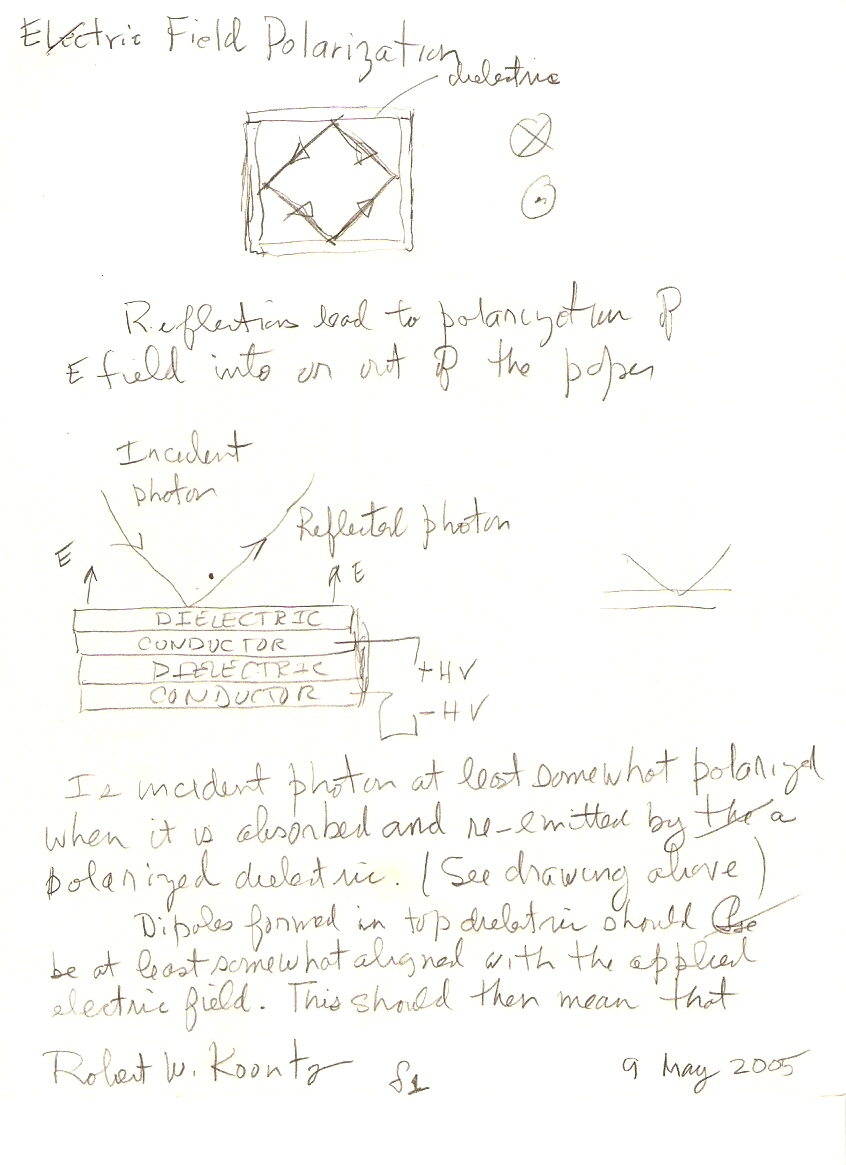 Electric Field Polarization
dielectric
Reflections lead to polarization of
E field into or out of the paper
Incident
photon
Reflected photon
E
E
DIELECTRIC
CONDUCTOR
DIELECTRIC
CONDUCTOR
+HV
-HV
Is incident photon at least somewhat polarized
when it is absorbed and re-emitted by the a
polarized dielectric. (See drawing above)
Dipoles formed in top dielectric should
be at least somewhat aligned with the applied
electric field. This should then mean that
Robert W. Koontz
81
9 May 2005